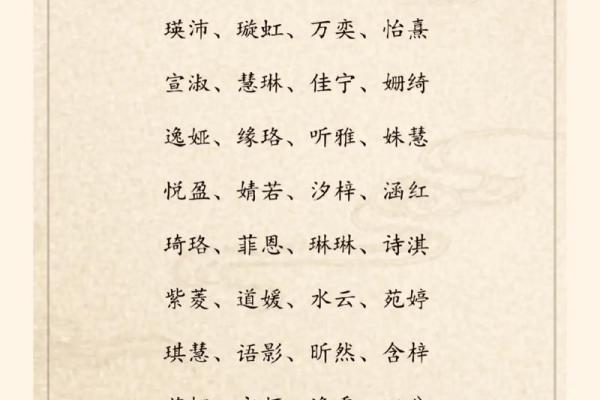 瑛沛、璇虹、万奕、怡熹
宣淑、慧琳、佳宁、姗绮
逸娅、缘珞、听雅、姝慧
悦盈、婧若、汐梓、涵红
琦珞、菲恩、琳琳、诗淇
紫菱、道媛、水云、苑婷
琪慧、语影、昕然、含梓